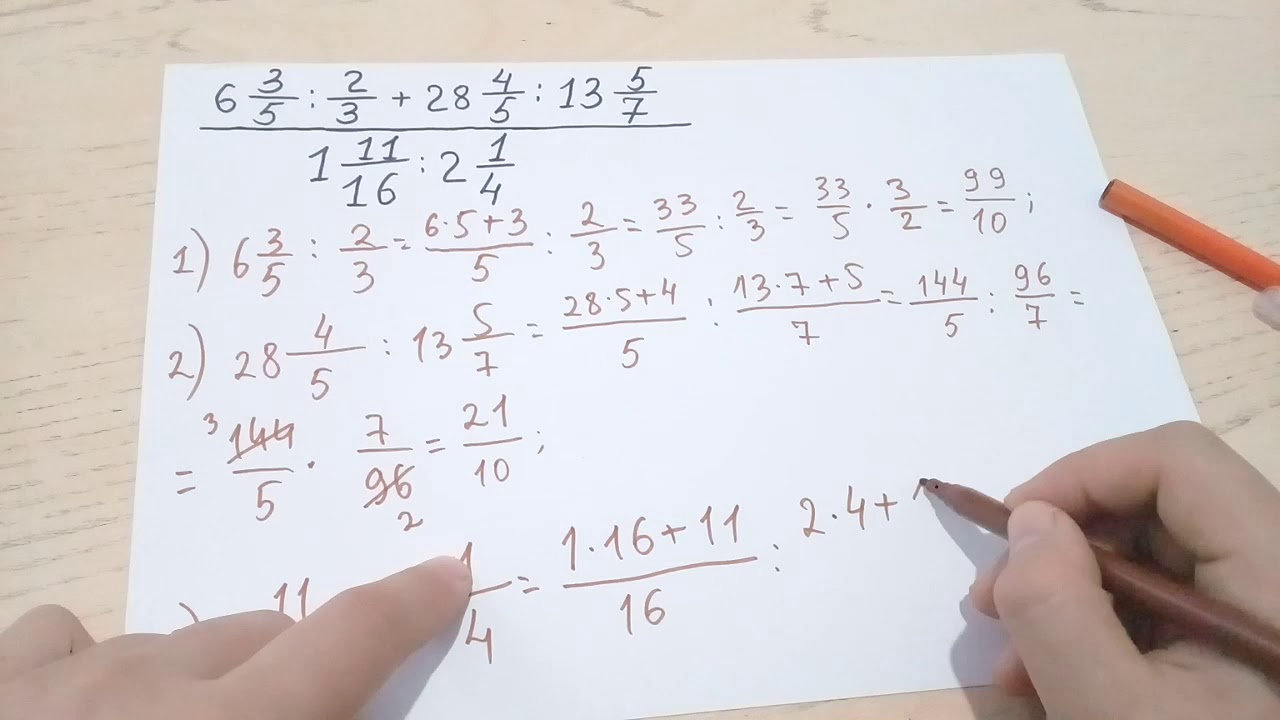 6 3/5 : 2/3 + 28 4/5 : 13 5/7
1 11/16 : 2 1/4
1) 6 3/5 : 2/3 = 6·5+3/5 : 2/3 = 33/5 : 2/3 = 33/5 · 3/2 = 99/10 ;
2) 28 4/5 : 13 5/7 = 28·5+4/5 : 13·7+5/7 = 144/5 : 96/7 =
= 3 144/5 · 7/96 2 = 21/10 ;
) 11 1/4 = 1·16+11/16 : 2·4+